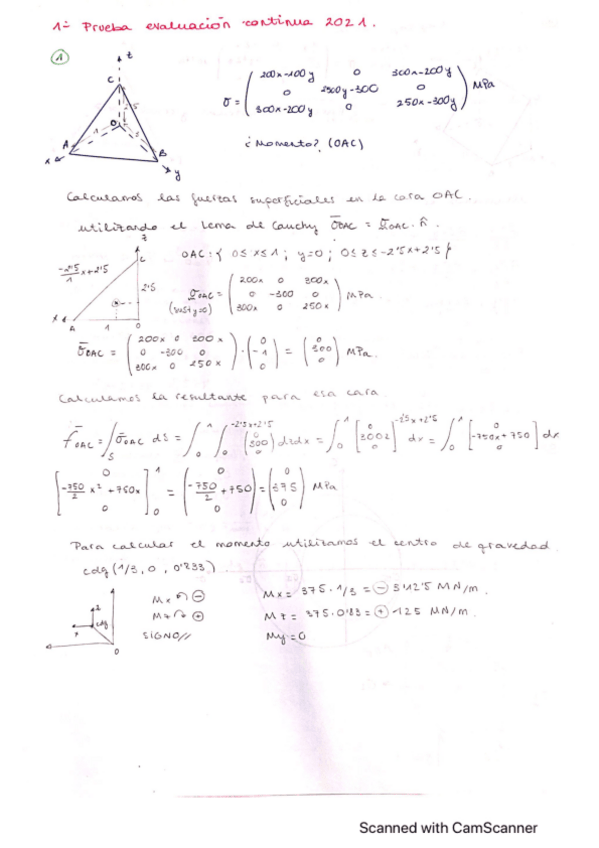 1- Prueba evaluación continua 2021.
①
z
C
2'5
O
A
B
x
y
σ = ( 200x-100y 0 300x-200y
0 2500y-300 0
300x-200y 0 250x-300y ) MPa
¿Momento? (OAC)
Calculamos las fuerzas superficiales en la cara OAC.
utilizando el lema de Cauchy σ̄OAC = σOAC · n̂.
OAC: { 0≤x≤1 ; y=0 ; 0≤z≤-2'5x+2'5 }
-2'5/1 x+2'5
z
C
2'5
x
A 1 O
σOAC = ( 200x 0 300x
(sust y=0) 0 -300 0
300x 0 250x ) MPa
σ̄OAC = ( 200x 0 300x
0 -300 0
300x 0 250x ) · ( 0
-1
0 ) = ( 0
300
0 ) MPa.
Calculamos la resultante para esa cara
f̄OAC = ∫S σ̄OAC dS = ∫0^1 ∫0^-2'5x+2'5 ( 0 300 0 ) dzdx = ∫0^1 [ 0 300z 0 ]0^-2'5x+2'5 dx = ∫0^1 [ 0 -750x+750 0 ] dx
[ 0 -750/2 x² + 750x 0 ]0^1 = ( 0 -750/2 + 750 0 ) = ( 0 375 0 ) MPa
Para calcular el momento utilizamos el centro de gravedad
cdg (1/3, 0, 0'833).
Mx ⊖
Mz ⊕
SIGNO//
z
x
cdg
O
Mx = 375 · 1/3 = ⊖ 312'5 MN/m.
Mz = 375 · 0'83 = ⊕ 125 MN/m.
My = 0
Scanned with CamScanner